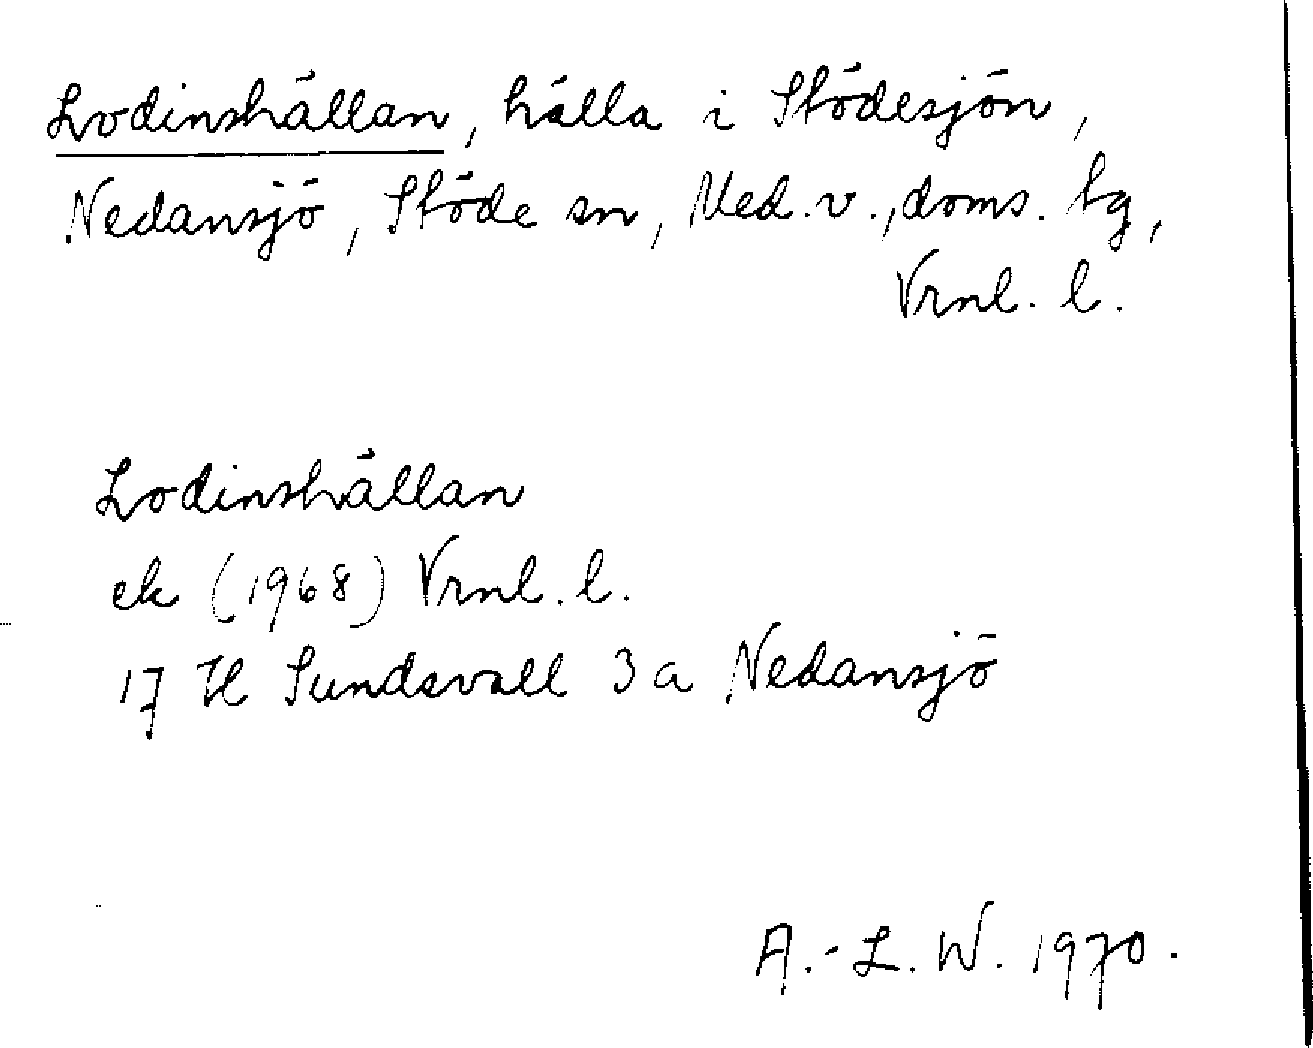 Lodinshällan, hälla i Stödesjön,
Nedansjö, Stöde sn, Med. v., doms. bg,
Vrnl. l.
Lodinshällan
ek (1968) Vrnl. l.
17 H Sundsvall 3 a Nedansjö
A.-L. W. 1970.